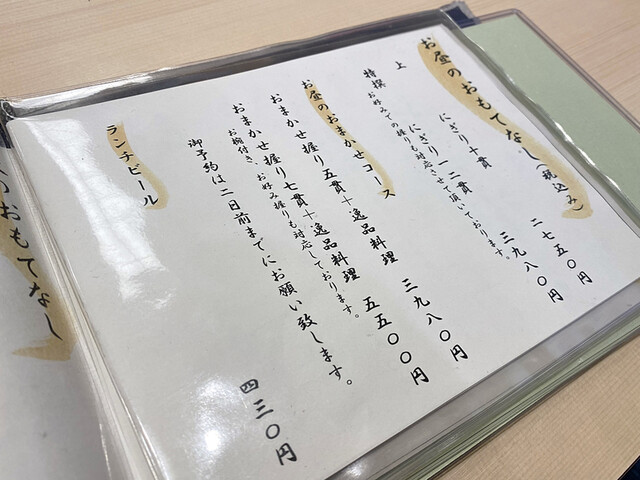 お昼のおもてなし（税込み）
上　にぎり十貫　二七五〇円
特撰　にぎり一二貫　三九八〇円
お好みでの握りも対応させて頂いております。
お昼のおまかせコース
おまかせ握り五貫＋逸品料理　三九八〇円
おまかせ握り七貫＋逸品料理　五五〇〇円
お椀付き、お好み握りも対応しております。
御予約は二日前までにお願い致します。
ランチビール　四三〇円
のおもてなし